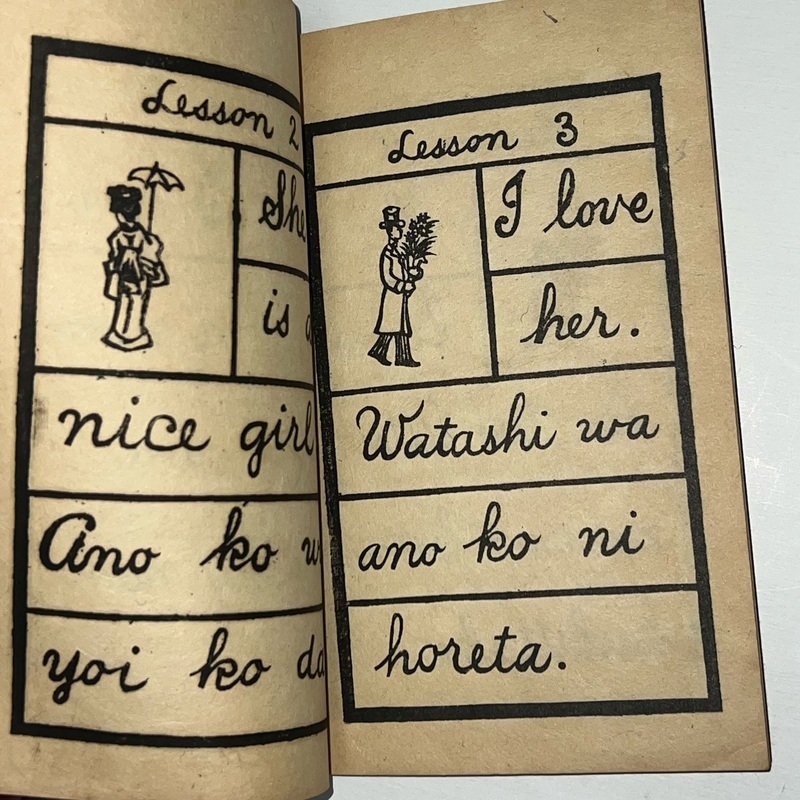 Lesson 2
She
is
nice girl
Ano ko
yoi ko
Lesson 3
I love
her.
Watashi wa
ano ko ni
horeta.